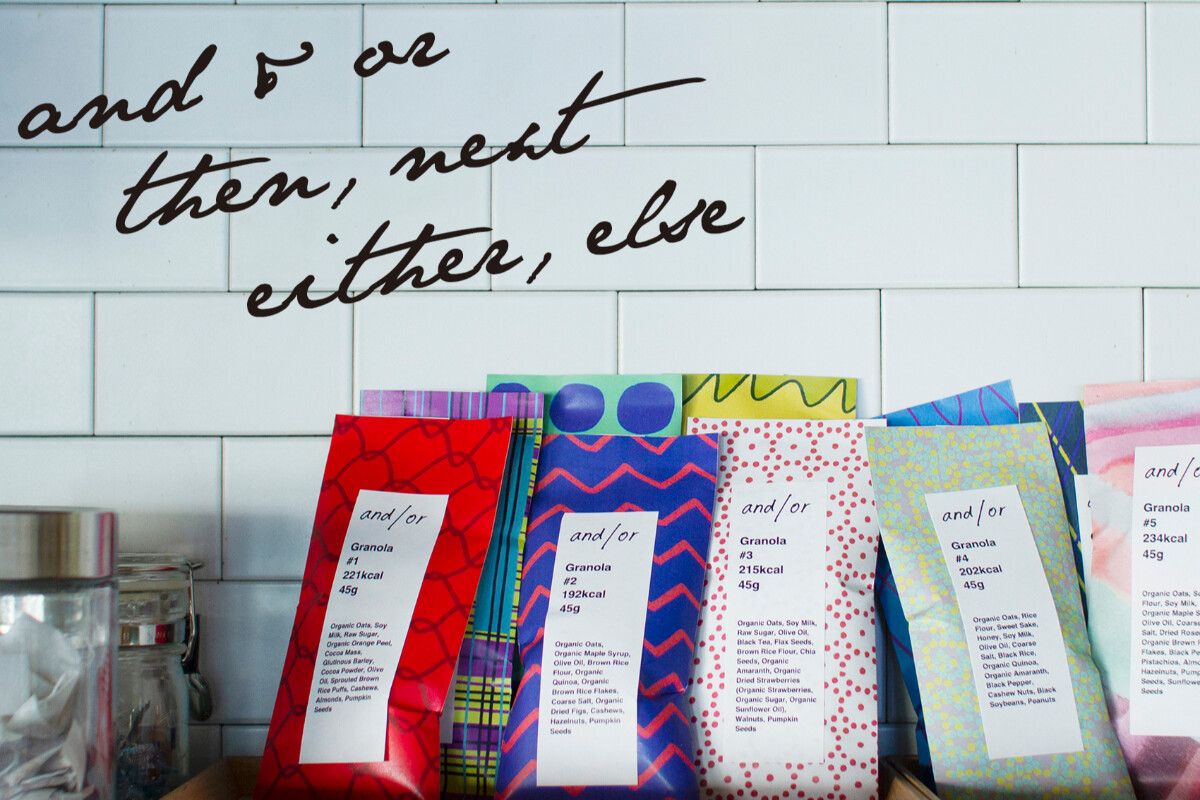 and & or
then, next
either, else
and/or
Granola
#1
221kcal
45g
Organic Oats, Soy
Milk, Raw Sugar,
Organic Orange Peel,
Cocoa Mass,
Glutinous Barley,
Cocoa Powder, Olive
Oil, Sprouted Brown
Rice Puffs, Cashews,
Almonds, Pumpkin
Seeds
and/or
Granola
#2
192kcal
45g
Organic Oats,
Organic Maple Syrup,
Olive Oil, Brown Rice
Flour, Organic
Quinoa, Organic
Brown Rice Flakes,
Coarse Salt, Organic
Dried Figs, Cashews,
Hazelnuts, Pumpkin
Seeds
and/or
Granola
#3
215kcal
45g
Organic Oats, Soy Milk,
Raw Sugar, Olive Oil,
Black Tea, Flax Seeds,
Brown Rice Flour, Chia
Seeds, Organic
Amaranth, Organic
Dried Strawberries
(Organic Strawberries,
Organic Sugar, Organic
Sunflower Oil),
Walnuts, Pumpkin
Seeds
and/or
Granola
#4
202kcal
45g
Organic Oats, Rice
Flour, Sweet Sake,
Honey, Soy Milk,
Olive Oil, Coarse
Salt, Black Rice,
Organic Quinoa,
Organic Amaranth,
Black Pepper,
Cashew Nuts, Black
Soybeans, Peanuts
and/o
Granola
#5
234kcal
45g
Organic Oats,
Flour, Soy Milk,
Organic Maple
Olive Oil, Coarse
Salt, Dried
Organic Brown
Flakes, Black
Pistachios,
Hazelnuts,
Seeds,
Seeds